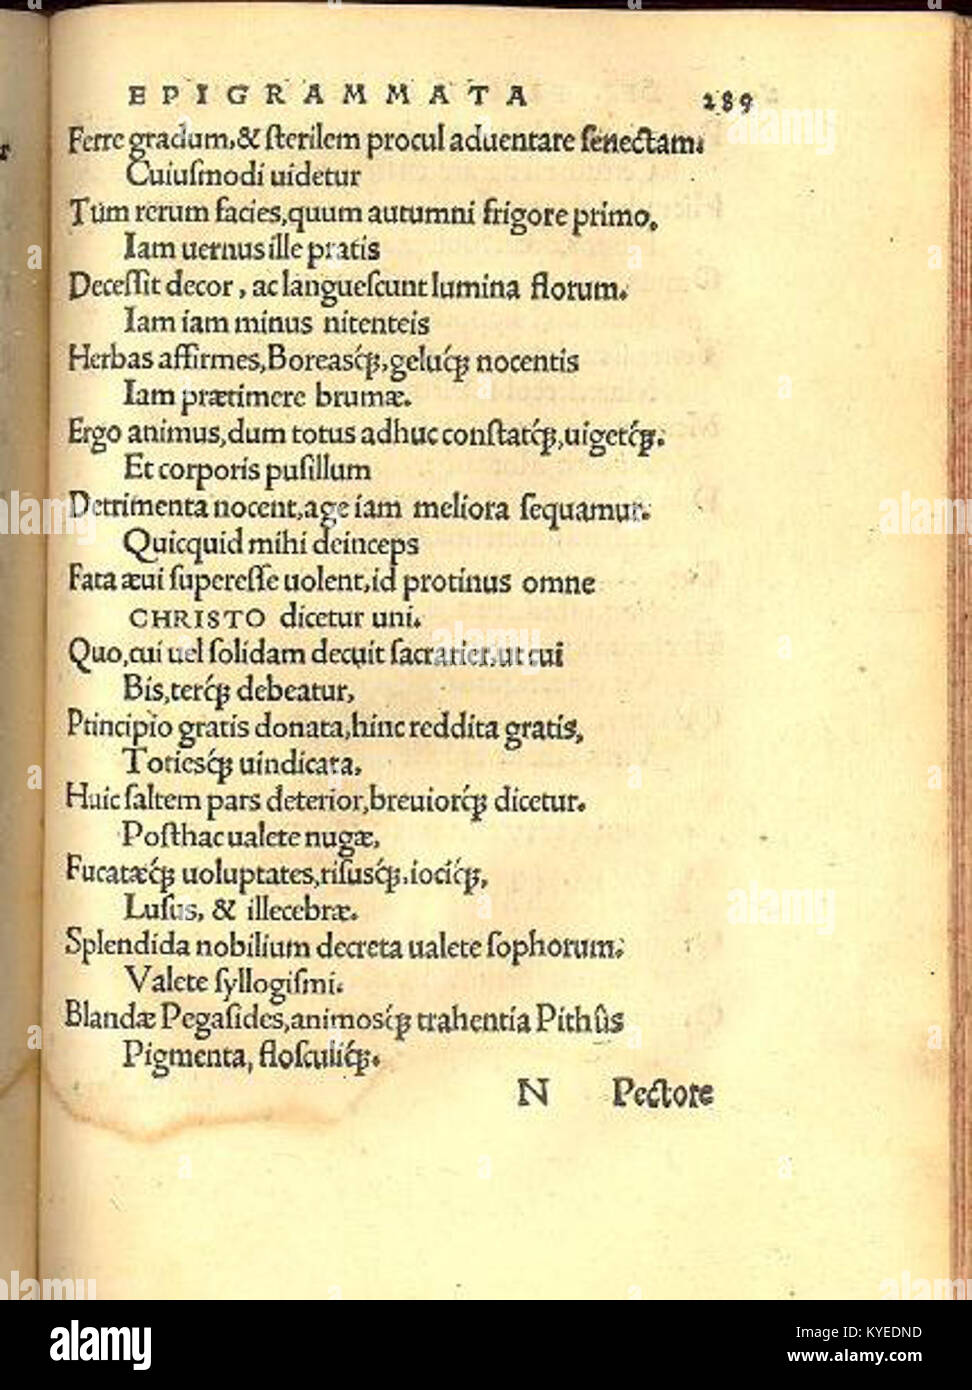 EPIGRAMMATA 289
Ferre gradum,& sterilem procul aduentare senectam.
Cuiusmodi uidetur
Tum rerum facies,quum autumni frigore primo,
Iam uernus ille pratis
Decessit decor, ac languescunt lumina florum.
Iam iam minus nitenteis
Herbas affirmes,Boreasq́ꝫ,geluq́ꝫ nocentis
Iam prætimere brumæ.
Ergo animus,dum totus adhuc constatq́ꝫ,uigetq́ꝫ.
Et corporis pusillum
Detrimenta nocent,age iam meliora sequamur.
Quicquid mihi deinceps
Fata æui superesse uolent,id protinus omne
CHRISTO dicetur uni.
Quo,cui uel solidam decuit sacrarier,ut cui
Bis,terq́ꝫ debeatur,
Ptincipio gratis donata,hinc reddita gratis,
Totiesq́ꝫ uindicata,
Huic saltem pars deterior,breuiorq́ꝫ dicetur.
Posthac ualete nugæ,
Fucatæq́ꝫ uoluptates,risusq́ꝫ,iociq́ꝫ,
Lusus, & illecebræ.
Splendida nobilium decreta ualete sophorum.
Valete syllogismi.
Blandæ Pegasides,animosq́ꝫ trahentia Pithûs
Pigmenta, flosculiq́ꝫ.
N Pectore
alamy
Image ID: KYEEDND
www.alamy.com